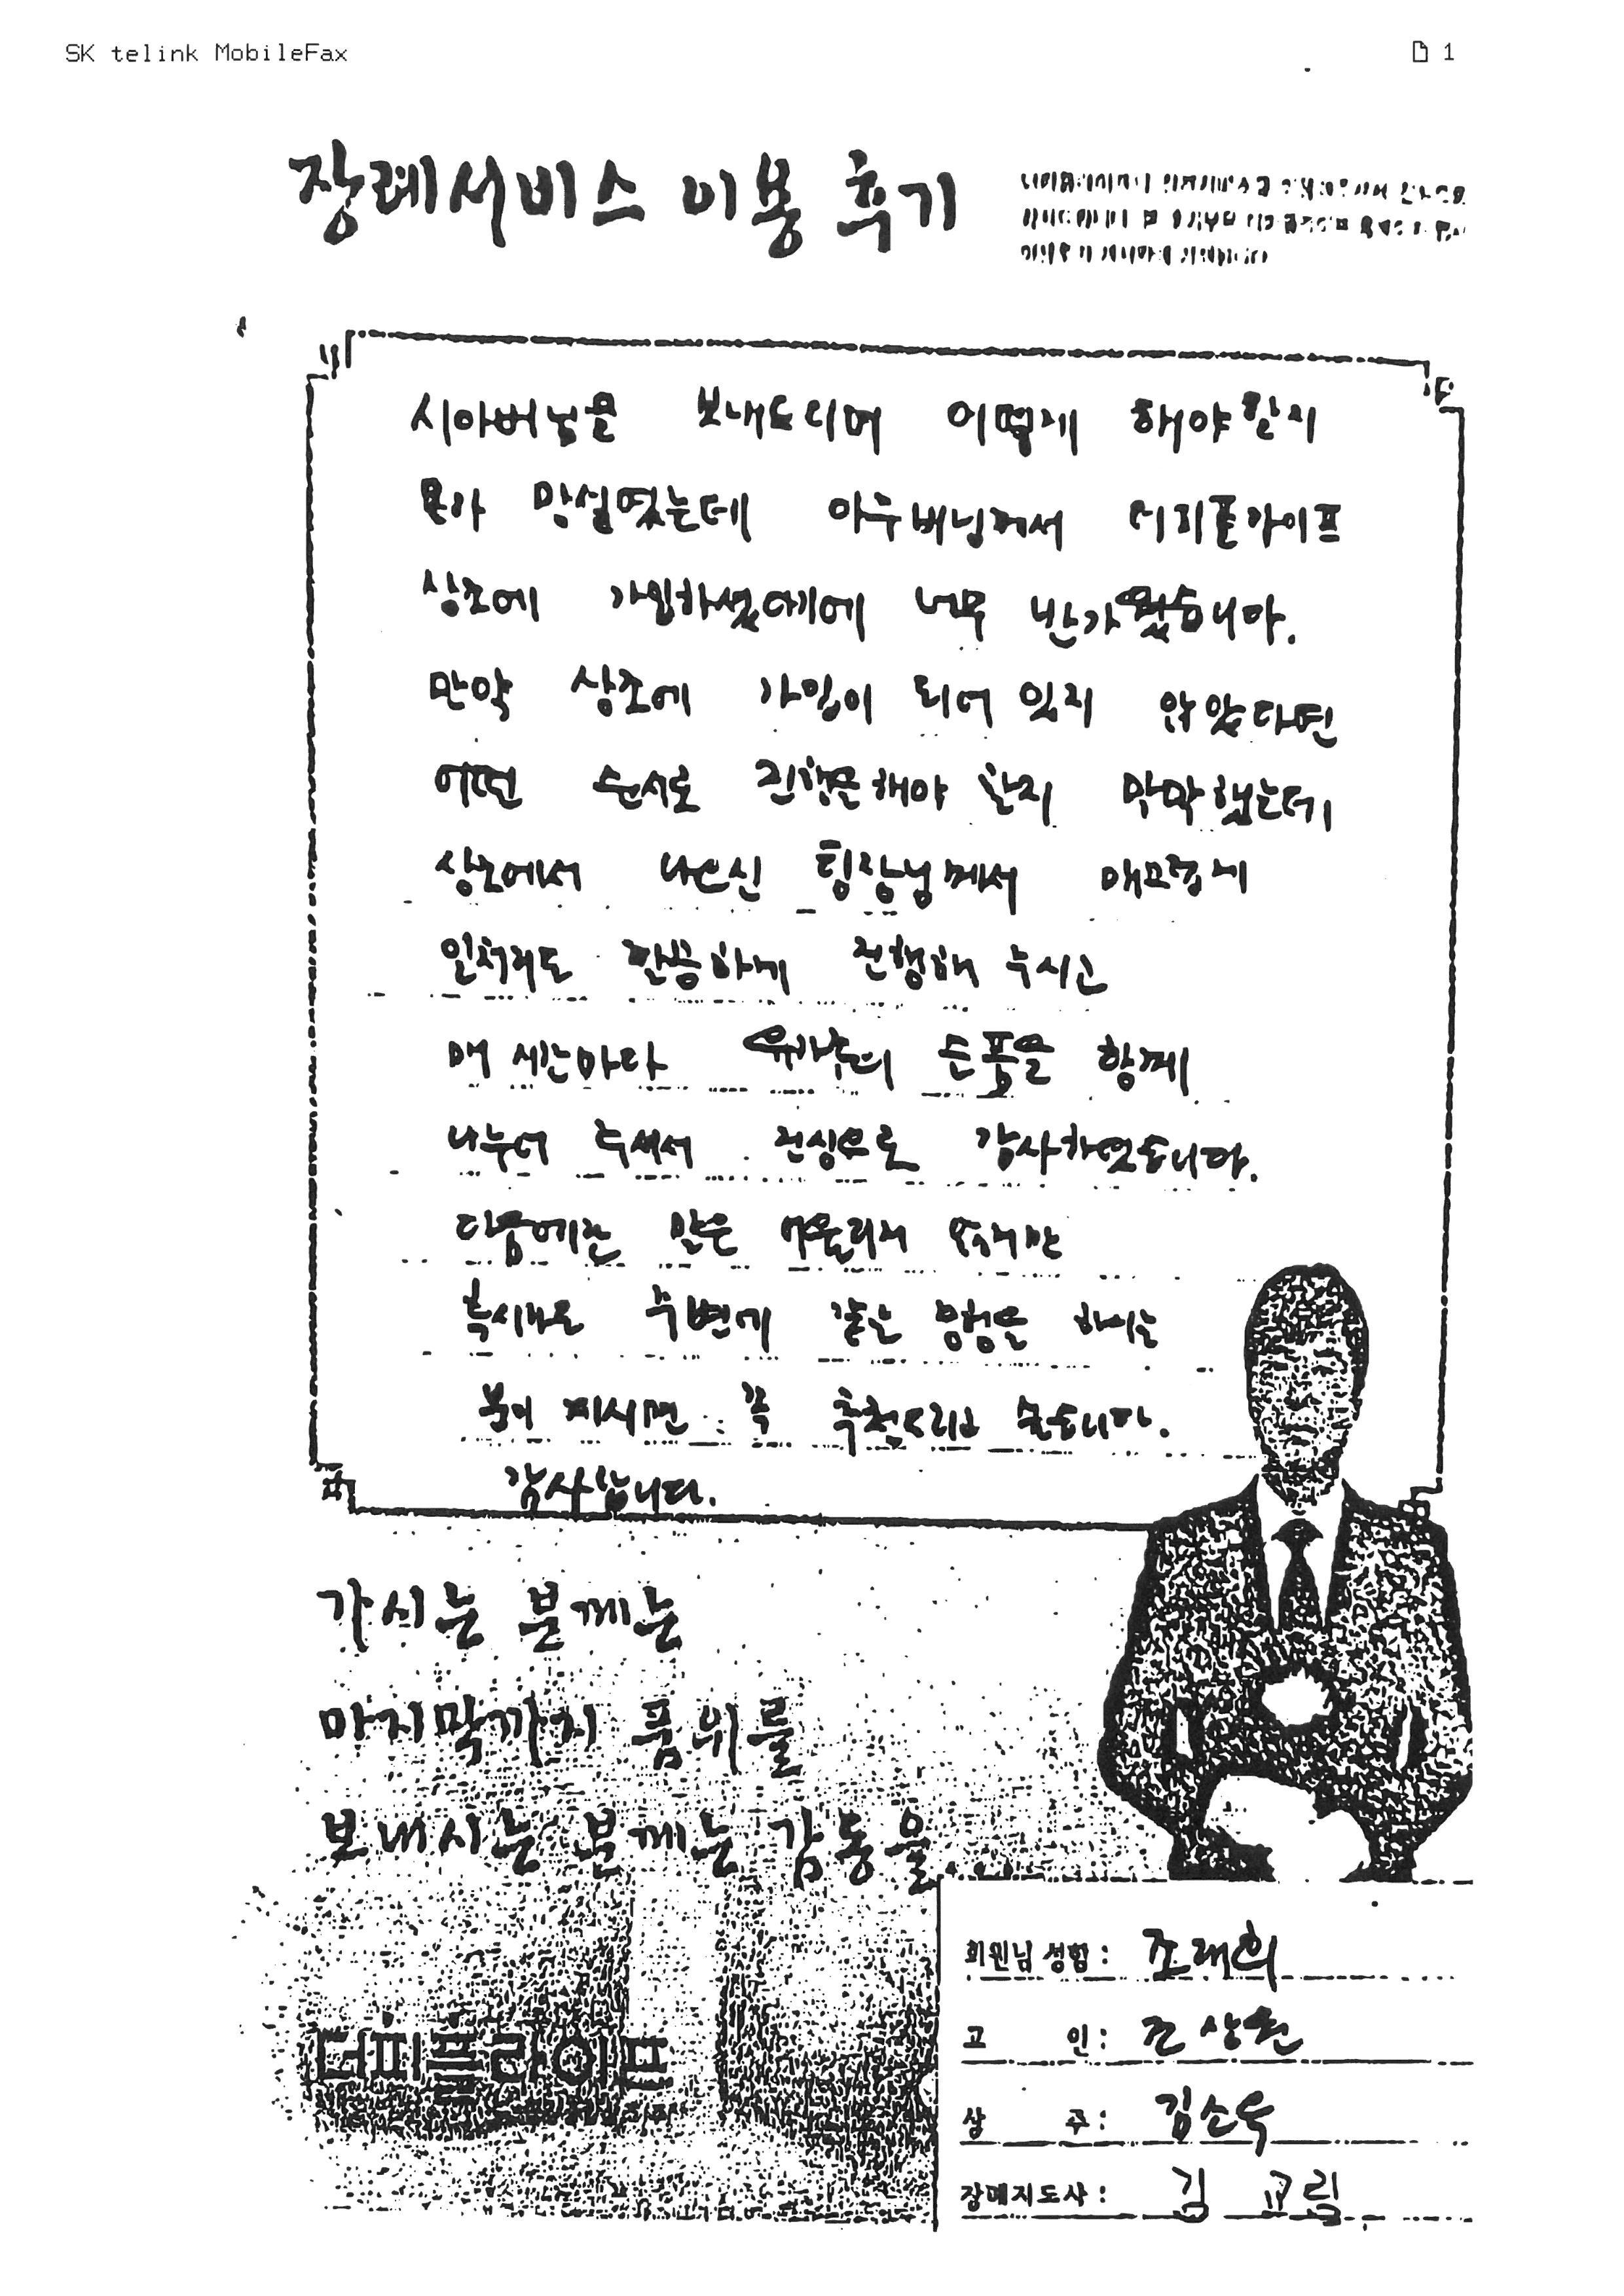 SK telink MobileFax
1
장례서비스 이용 후기
시아버님을 보내드리며 어떻게 해야할지
몰라 망설였는데 아주버님께서 더피플라이프
상조에 가입하셨다기에 너무 반가웠습니다.
만약 상조에 가입이 되어 있지 않았다면
어떤 순서로 진행을해야 할지 막막했는데
상조에서 나오신 팀장님께서 매끄럽게
일처리도 깔끔하게 진행해 주시고
매 시간마다 유가족의 슬픔을 함께
나누어 주셔서 진심으로 감사하였습니다.
다음에란 말은 어울리지 않지만
혹시라도 주변에 같은 경험을 하시는
분이 계시면 꼭 추천드리고 싶습니다.
감사합니다.
가시는 분께는
마지막까지 품위를
보내시는 분께는 감동을
더피플라이프
회원님 성함: 조래희
고 인: 조상원
상 주: 김소숙
장례지도사: 김교림